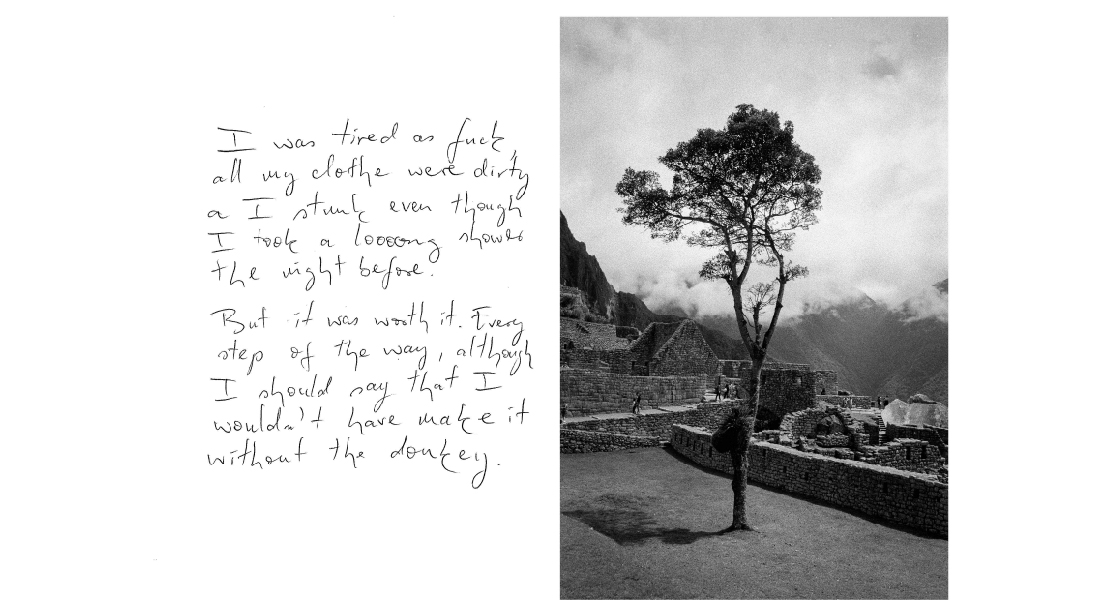 I was tired as fuck,
all my clothe were dirty
a I stunk even though
I took a loooong shower
the night before.
But it was worth it. Every
step of the way, although
I should say that I
wouldn't have make it
without the donkey.